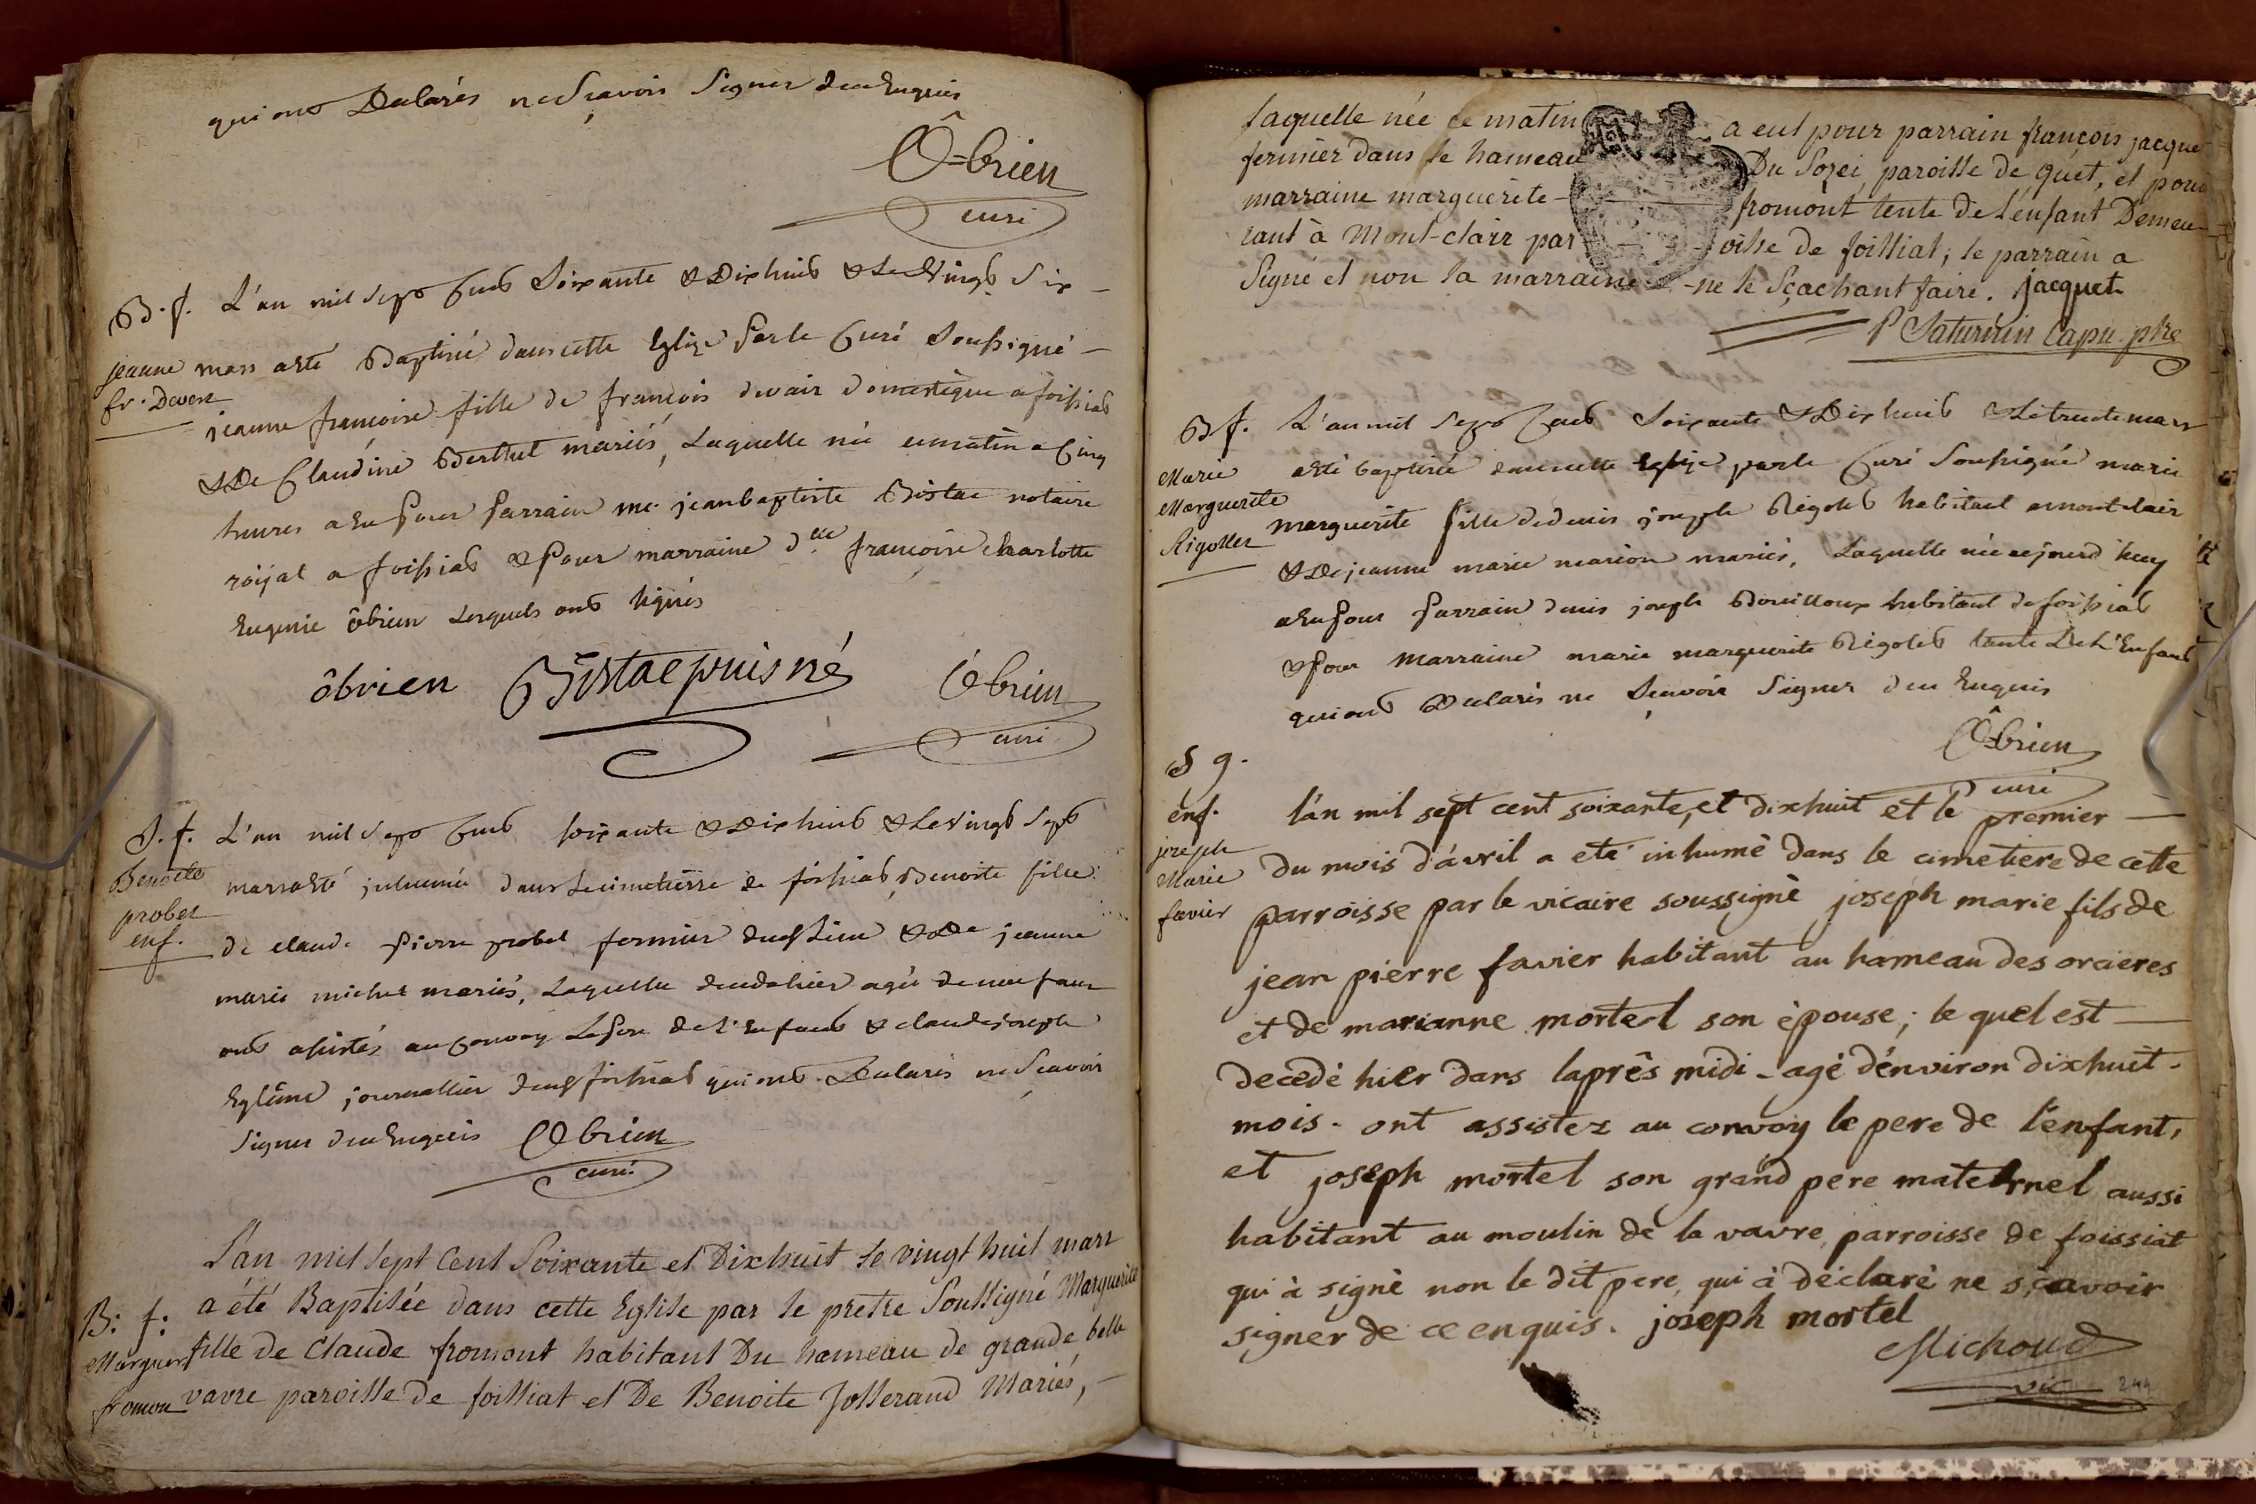 qui ont Declarés ne Sçavoir Signer de ce Enquis
Ô=brien
curé
B. f. L'an mil sept Cent Soixante & Dixhuit & Le Vingt Six
jeanne fr. Devers
mars a été Baptisée dans cette Eglize Par le Curé Soussigné
jeanne francoise fille de francois devair domestique a foissiat
& De Claudine Berthet mariés, Laquelle née ce matin a Cinq
heures a Eu Pour Parrain me. jean baptiste Bistac notaire
roijal a foissiat & Pour marraine dlle francoise charlotte
Eugenie ôbrien Lesquels ont signés
ôbrien Bistac puisné Ôbrien
curé
S. f. L'an mil Sept Cent soixante & Dixhuit & Le Vingt Sept
Benoite probet enf.
mars a Eté inhumée dans Le cimetierre de foissiat Benoite fille
de claude Pierre probet fermier dud Lieu & De jeanne
marie michel mariés, Laquelle decedée hier agée de neuf ans
ont assistés au Convoy Le Pere de L'Enfant & claude joseph
Eglême journallier dud foissiat qui ont Declarés ne Scavoir
Signer de ce Enquis Ôbrien
curé
L'an mil sept Cent Soixante et Dixhuit le vingt huit mars
B: f: Marguer fromon
a été Baptisée dans cette Eglise par le prêtre Soussigné Marguerite
fille de Claude fromont habitant Du hameau de grande belle
vavre paroisse de foissiat et De Benoite Josserand Mariés,
laquelle née ce matin a eut pour parrain françois jacquet
fermier dans le hameau Du Sozei paroisse de quet, et pour
marraine marguerite fromont tente De L'enfant Demeu-
rant à Mont-clair paroisse de foissiat; le parrain a
Signé et non la marraine ne le Sçachant faire. jacquet
P Saturnin Capu. ptre
B f. L'an mil Sept Cent Soixante & Dix huit & Le trente mars
Marie Marguerite Rigollet
a été baptisée dans cette Eglize par le Curé Soussigné marie
marguerite fille de denis joseph Rigolet habitant a mont clair
& De jeanne marie marion mariés, Laquelle née aujourd'huy
a Eu Pour Parrain denis joseph Bouilloux habitant de foissiat
& Pour Marraine marie marguerite Rigolet tante De L'Enfant
qui ont Declarés ne Scavoir Signer de ce Enquis
Ô=brien
curé
S g.
enf. joseph Marie favier
l'an mil sept cent soixante, et dixhuit et le premier
du mois d'avril a eté inhumé dans le cimetiere de cette
parroisse par le vicaire soussigné joseph marie fils de
jean pierre favier habitant au hameau des orcieres
et de marianne mortel son épouse; le quel est
decedé hier dans laprês midi agé d'environ dixhuit
mois. ont assistez au convoy le pere de l'enfant,
et joseph mortel son grand pere maternel aussi
habitant au moulin de la vavre parroisse de foissiat
qui à signé non le dit pere qui à déclaré ne sçavoir
signer de ce enquis. joseph mortel
Michoud
vic
244